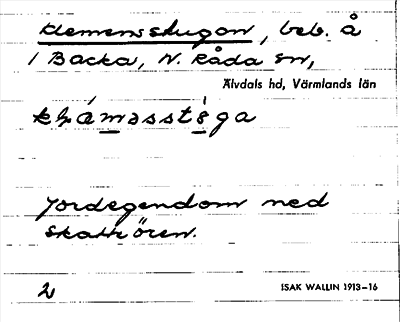 Klemensstugon, beb. å
1 Backa, N. Råda sn,
Älvdals hd, Värmlands län
Jordegendom med
skatt ören.
2
ISAK WALLIN 1913–16